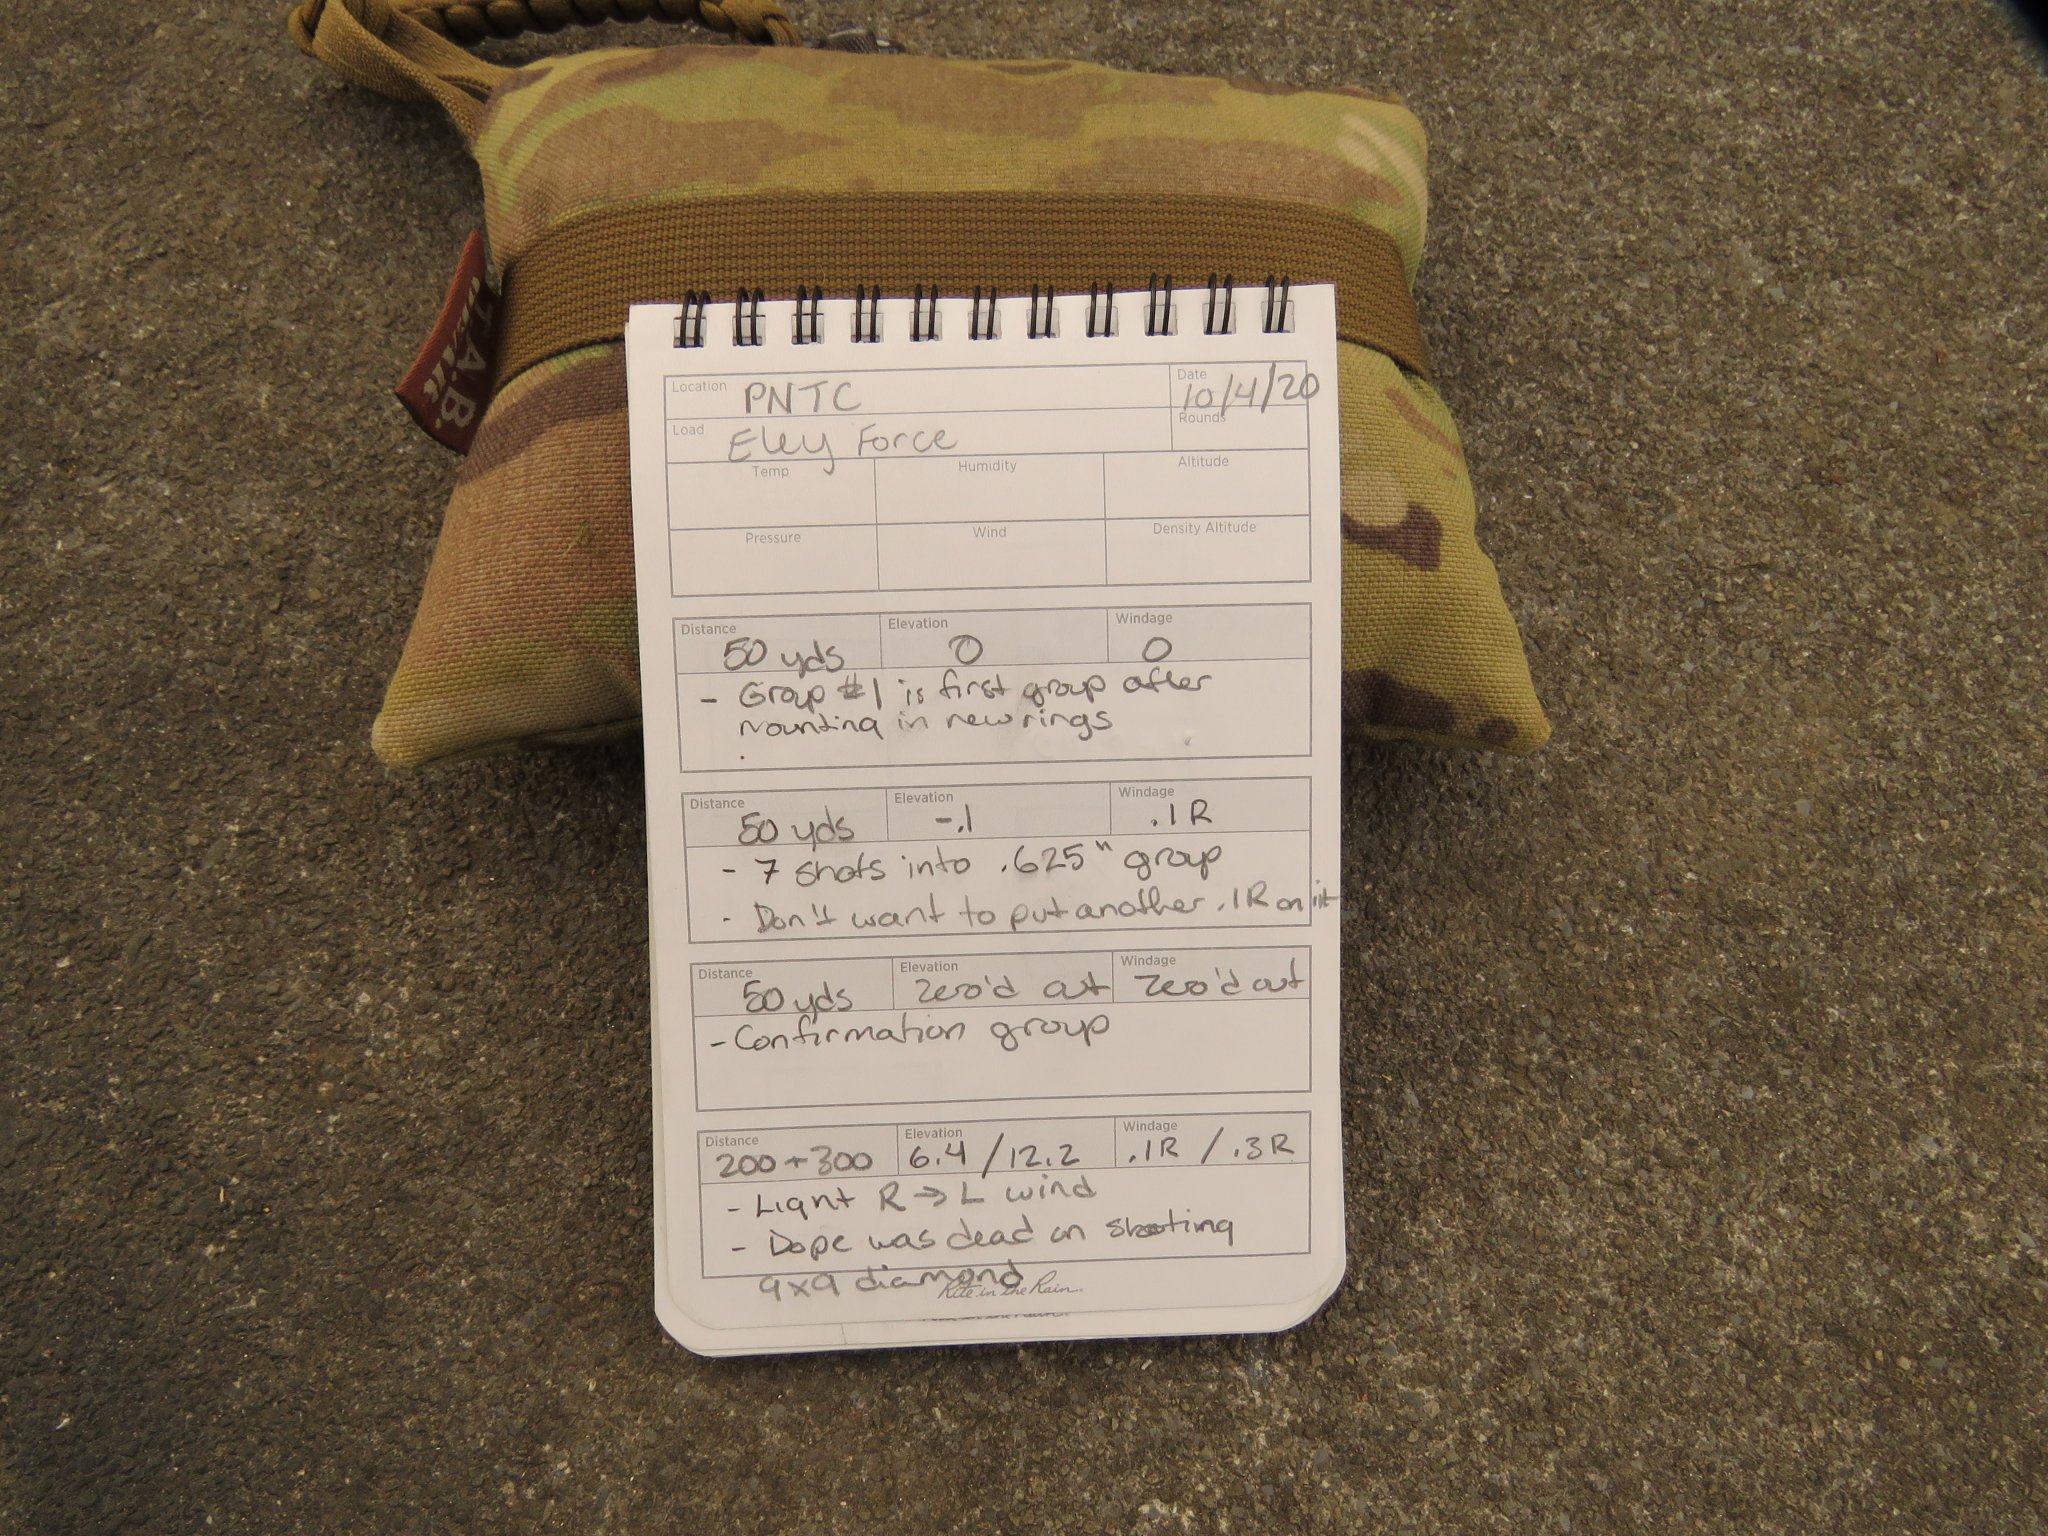 T.A.B.
GEAR
Location PNTC Date 10/4/20
Load Eley Force Rounds
Temp Humidity Altitude
Pressure Wind Density Altitude
Distance 50 yds Elevation 0 Windage 0
- Group #1 is first group after
mounting in new rings
Distance 50 yds Elevation -.1 Windage .1 R
- 7 shots into .625" group
- Don't want to put another .1R on it
Distance 50 yds Elevation Zero'd out Windage Zero'd out
- Confirmation group
Distance 200 + 300 Elevation 6.4 / 12.2 Windage .1R / .3R
- Light R → L wind
- Dope was dead on shooting
9x9 diamond
Rite in the Rain